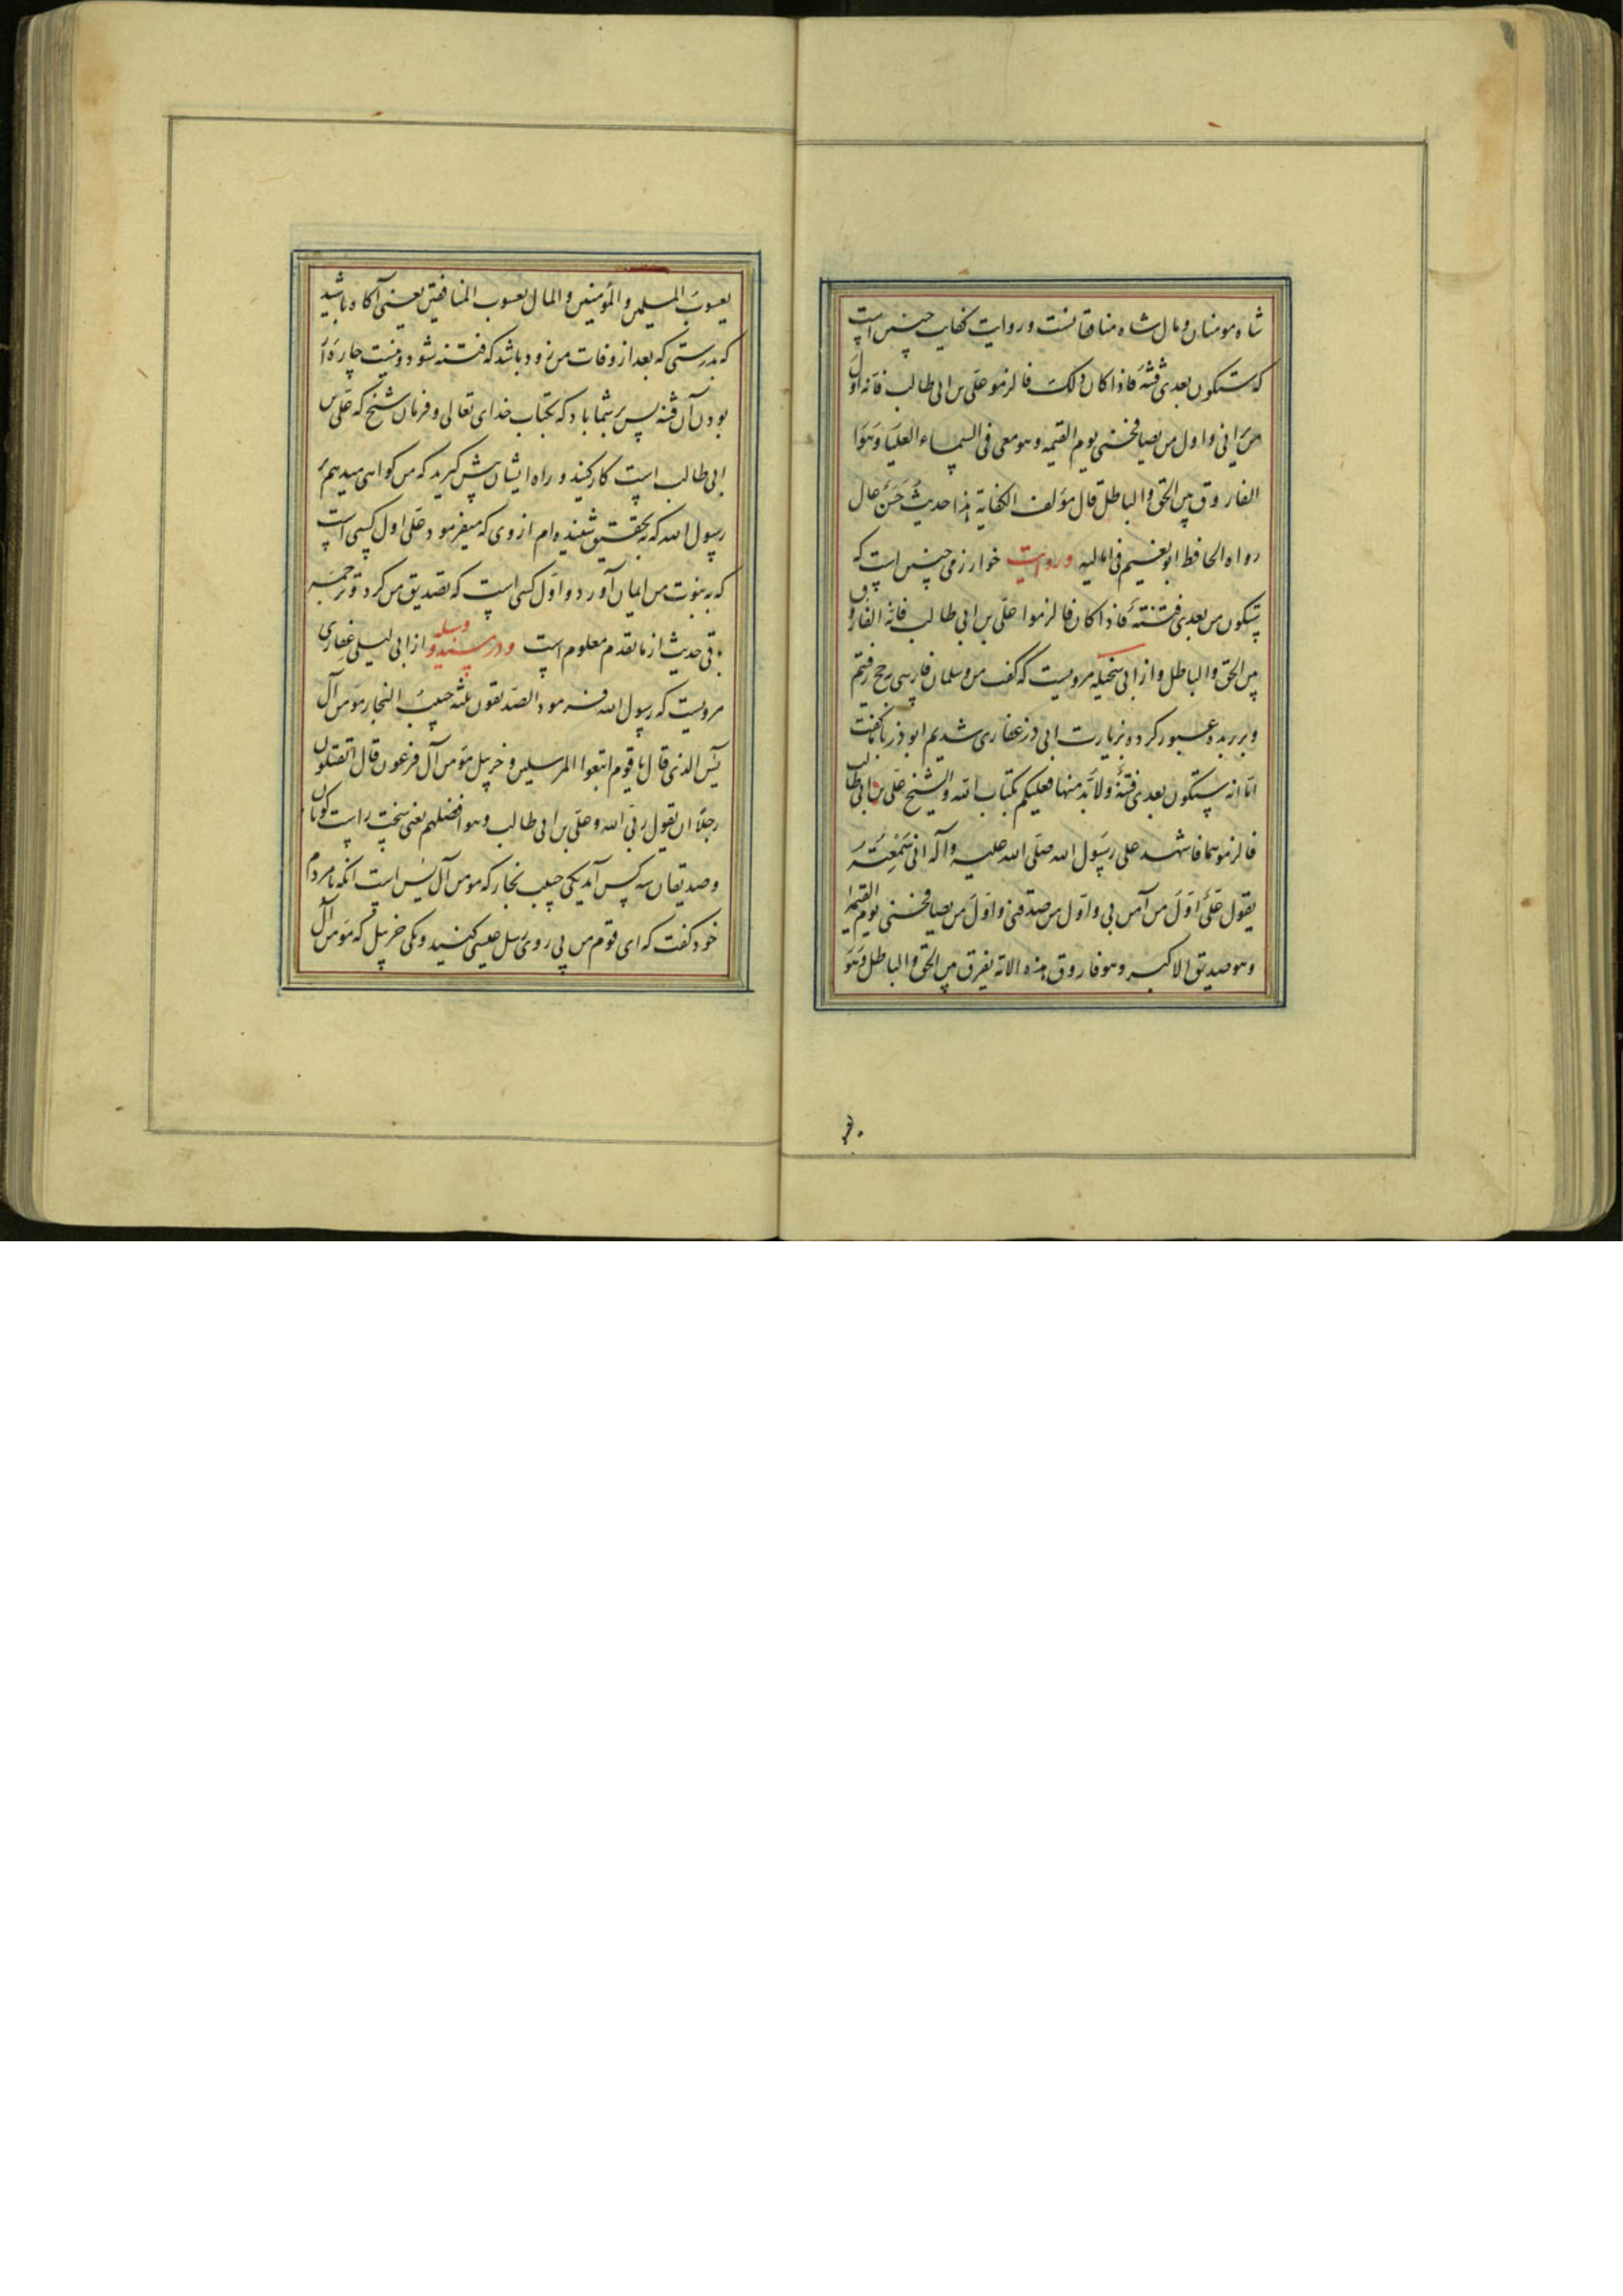 شاه مومنان و مال شاه منافقانست و روایت کفایه چنین است
که ستکون بعدی فتنة فاذا کان ذلک فالزمو علی بن ابی طالب فانه اول
من یرانی و اول من یصافحنی یوم القیمه و هو معی فی السماء العلیا و هو
الفاروق بین الحق والباطل قال مؤلف الکفایة هذا حدیث حسن عال
رواه الحافظ ابو نعیم فی امالیه و روایت خوارزمی چنین است که
ستکون من بعدی فتنة فاذا کان فالزموا علی بن ابی طالب فانه الفاروق
بین الحق والباطل و از ابی سخیله مرویست که گفت من و سلمان فارسی بحج رفتیم
و بر ربذه عبور کرده و بزیارت ابی ذر غفاری شدیم ابو ذر با ما گفت
اما انه ستکون بعدی فتنة ولا بد منها فعلیکم بکتاب الله والشیخ علی بن ابی طالب
فالزموهما فاشهد علی رسول الله صلی الله علیه و آله انی سمعته
یقول علی اول من آمن بی و اول من صدقنی و اول من یصافحنی یوم القیمة
و هو صدیق الاکبر و هو فاروق هذه الامة یفرق بین الحق والباطل و هو
یعسوب المسلمین والمؤمنین والمال یعسوب المنافقین یعنی آگاه باشید
که بدرستی که بعد از وفات من زود باشد که فتنه شود و نیست چاره از
بودن آن فتنه پس بر شما باد که بکتاب خدای تعالی و فرمان شیخ که علی بن
ابی طالب است کار کنید و راه ایشان پیش گیرید که من گواهی میدهم بر
رسول الله که به تحقیق شنیده ام از وی که میفرمود علی اول کسی است
که به نبوت من ایمان آورد و اول کسی است که تصدیق من کرد و ترجمه
باقی حدیث از ما تقدم معلوم است و در مسند و وسیله از ابی لیلی غفاری
مرویست که رسول الله فرمود الصدیقون ثلثه حبیب النجار مومن آل
یس الذی قال یا قوم اتبعوا المرسلین و خربیل مومن آل فرعون قال اتقتلون
رجلا ان یقول ربی الله و علی بن ابی طالب و هو افضلهم یعنی سخت راست گویان
و صدیقان سه کس آمد یکی حبیب نجار که مومن آل یس است انکه با مردم
خود گفت که ای قوم من پی روی رسل عیسی کنید و یکی خربیل که مومن آل